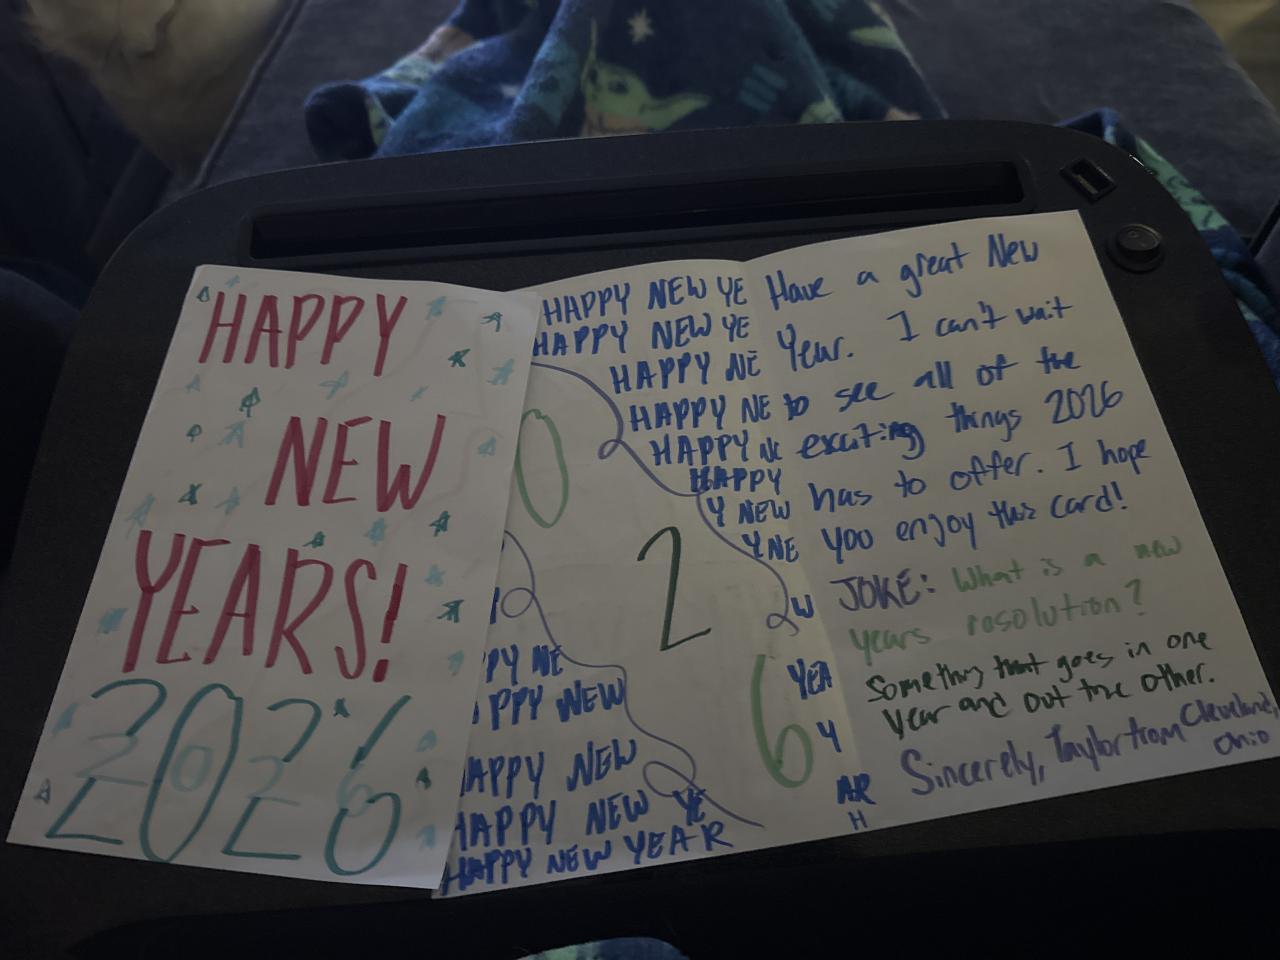 HAPPY
NEW
YEARS!
2026
2026
HAPPY NEW YE
HAPPY NEW YE
HAPPY NE
HAPPY NE
HAPPY NE
HAPPY
Y NEW
Y NE
W
YEA
Y
AR
H
0
2
6
PY NE
PPY NEW
APPY NEW
HAPPY NEW YE
HAPPY NEW YEAR
Have a great New
Year. I can't wait
to see all of the
exciting things 2026
has to offer. I hope
you enjoy this card!
JOKE: What is a new
years resolution?
Something that goes in one
year and out the other.
Sincerely, Taylor from Cleveland,
Ohio